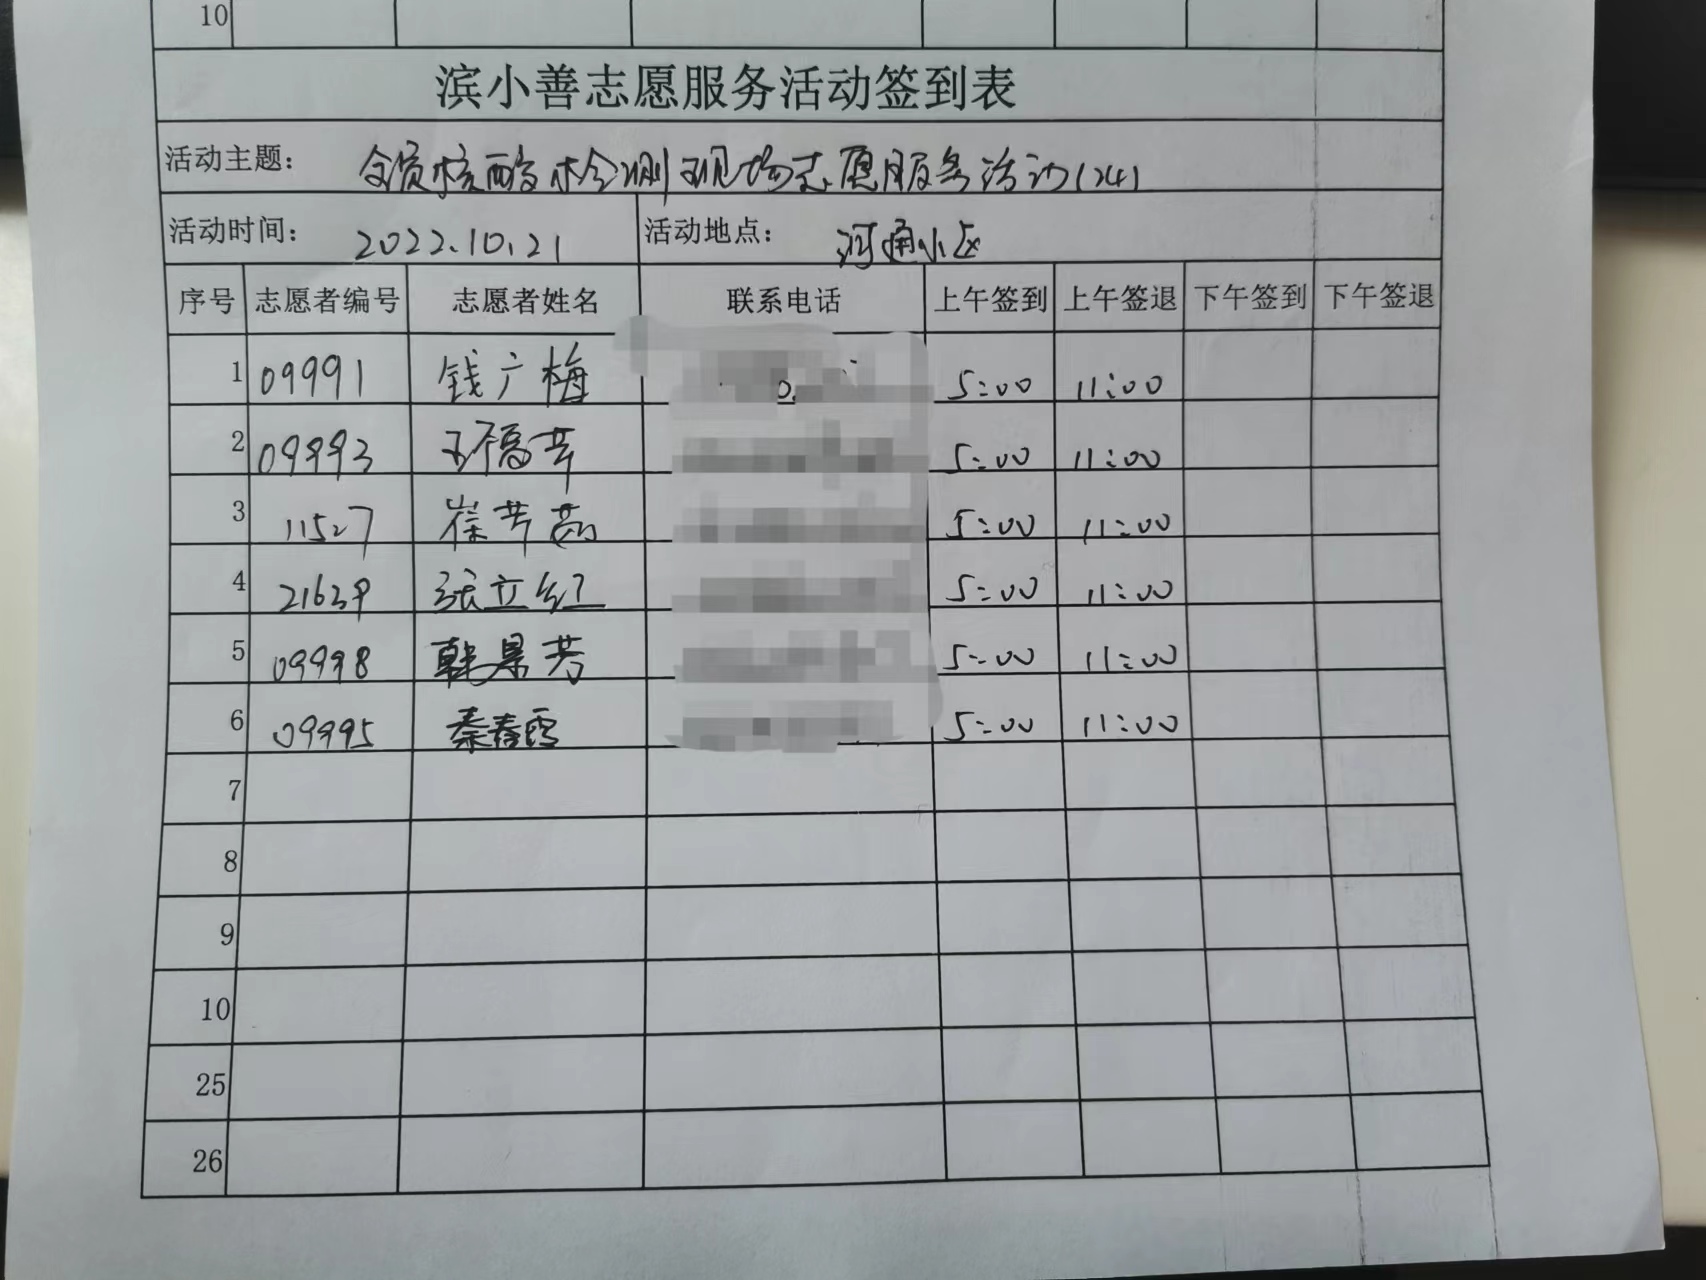 10
滨小善志愿服务活动签到表
活动主题： 全员核酸检测现场志愿服务活动(24)
活动时间： 2022.10.21 活动地点： 河通小区
序号 志愿者编号 志愿者姓名 联系电话 上午签到 上午签退 下午签到 下午签退
1 09991 钱广梅 5:00 11:00
2 09993 王福芹 5:00 11:00
3 11527 崔芳 5:00 11:00
4 21639 张立红 5:00 11:00
5 09998 韩景芳 5:00 11:00
6 09995 秦春霞 5:00 11:00
7
8
9
10
25
26